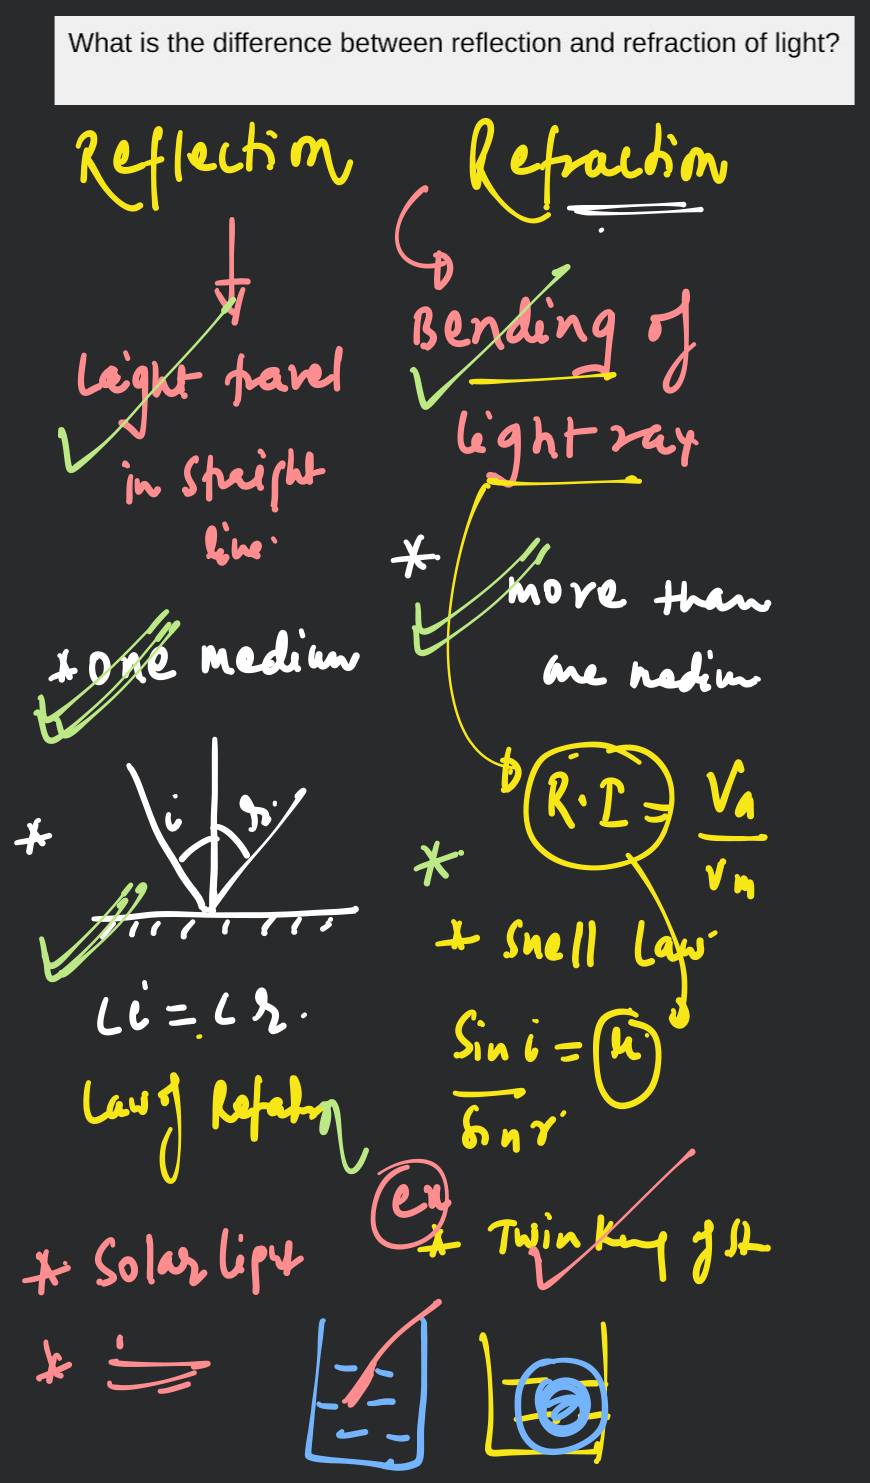 What is the difference between reflection and refraction of light?
Reflection
Light travel
in straight
line
* one medium
i r
*
∠i = ∠r.
Law of
* Solar light
*
Refraction
Bending of
light ray
*
more than
one medium
R.I = Va
Vm
*
* Snell Law
Sin i = μ
Sin r
ex
* Twinkling of